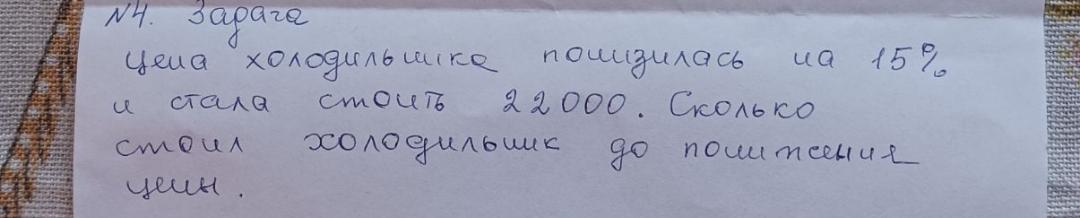 №4. Задача
Цена холодильника понизилась на 15%
и стала стоить 22000. Сколько
стоил холодильник до понижения
цены.